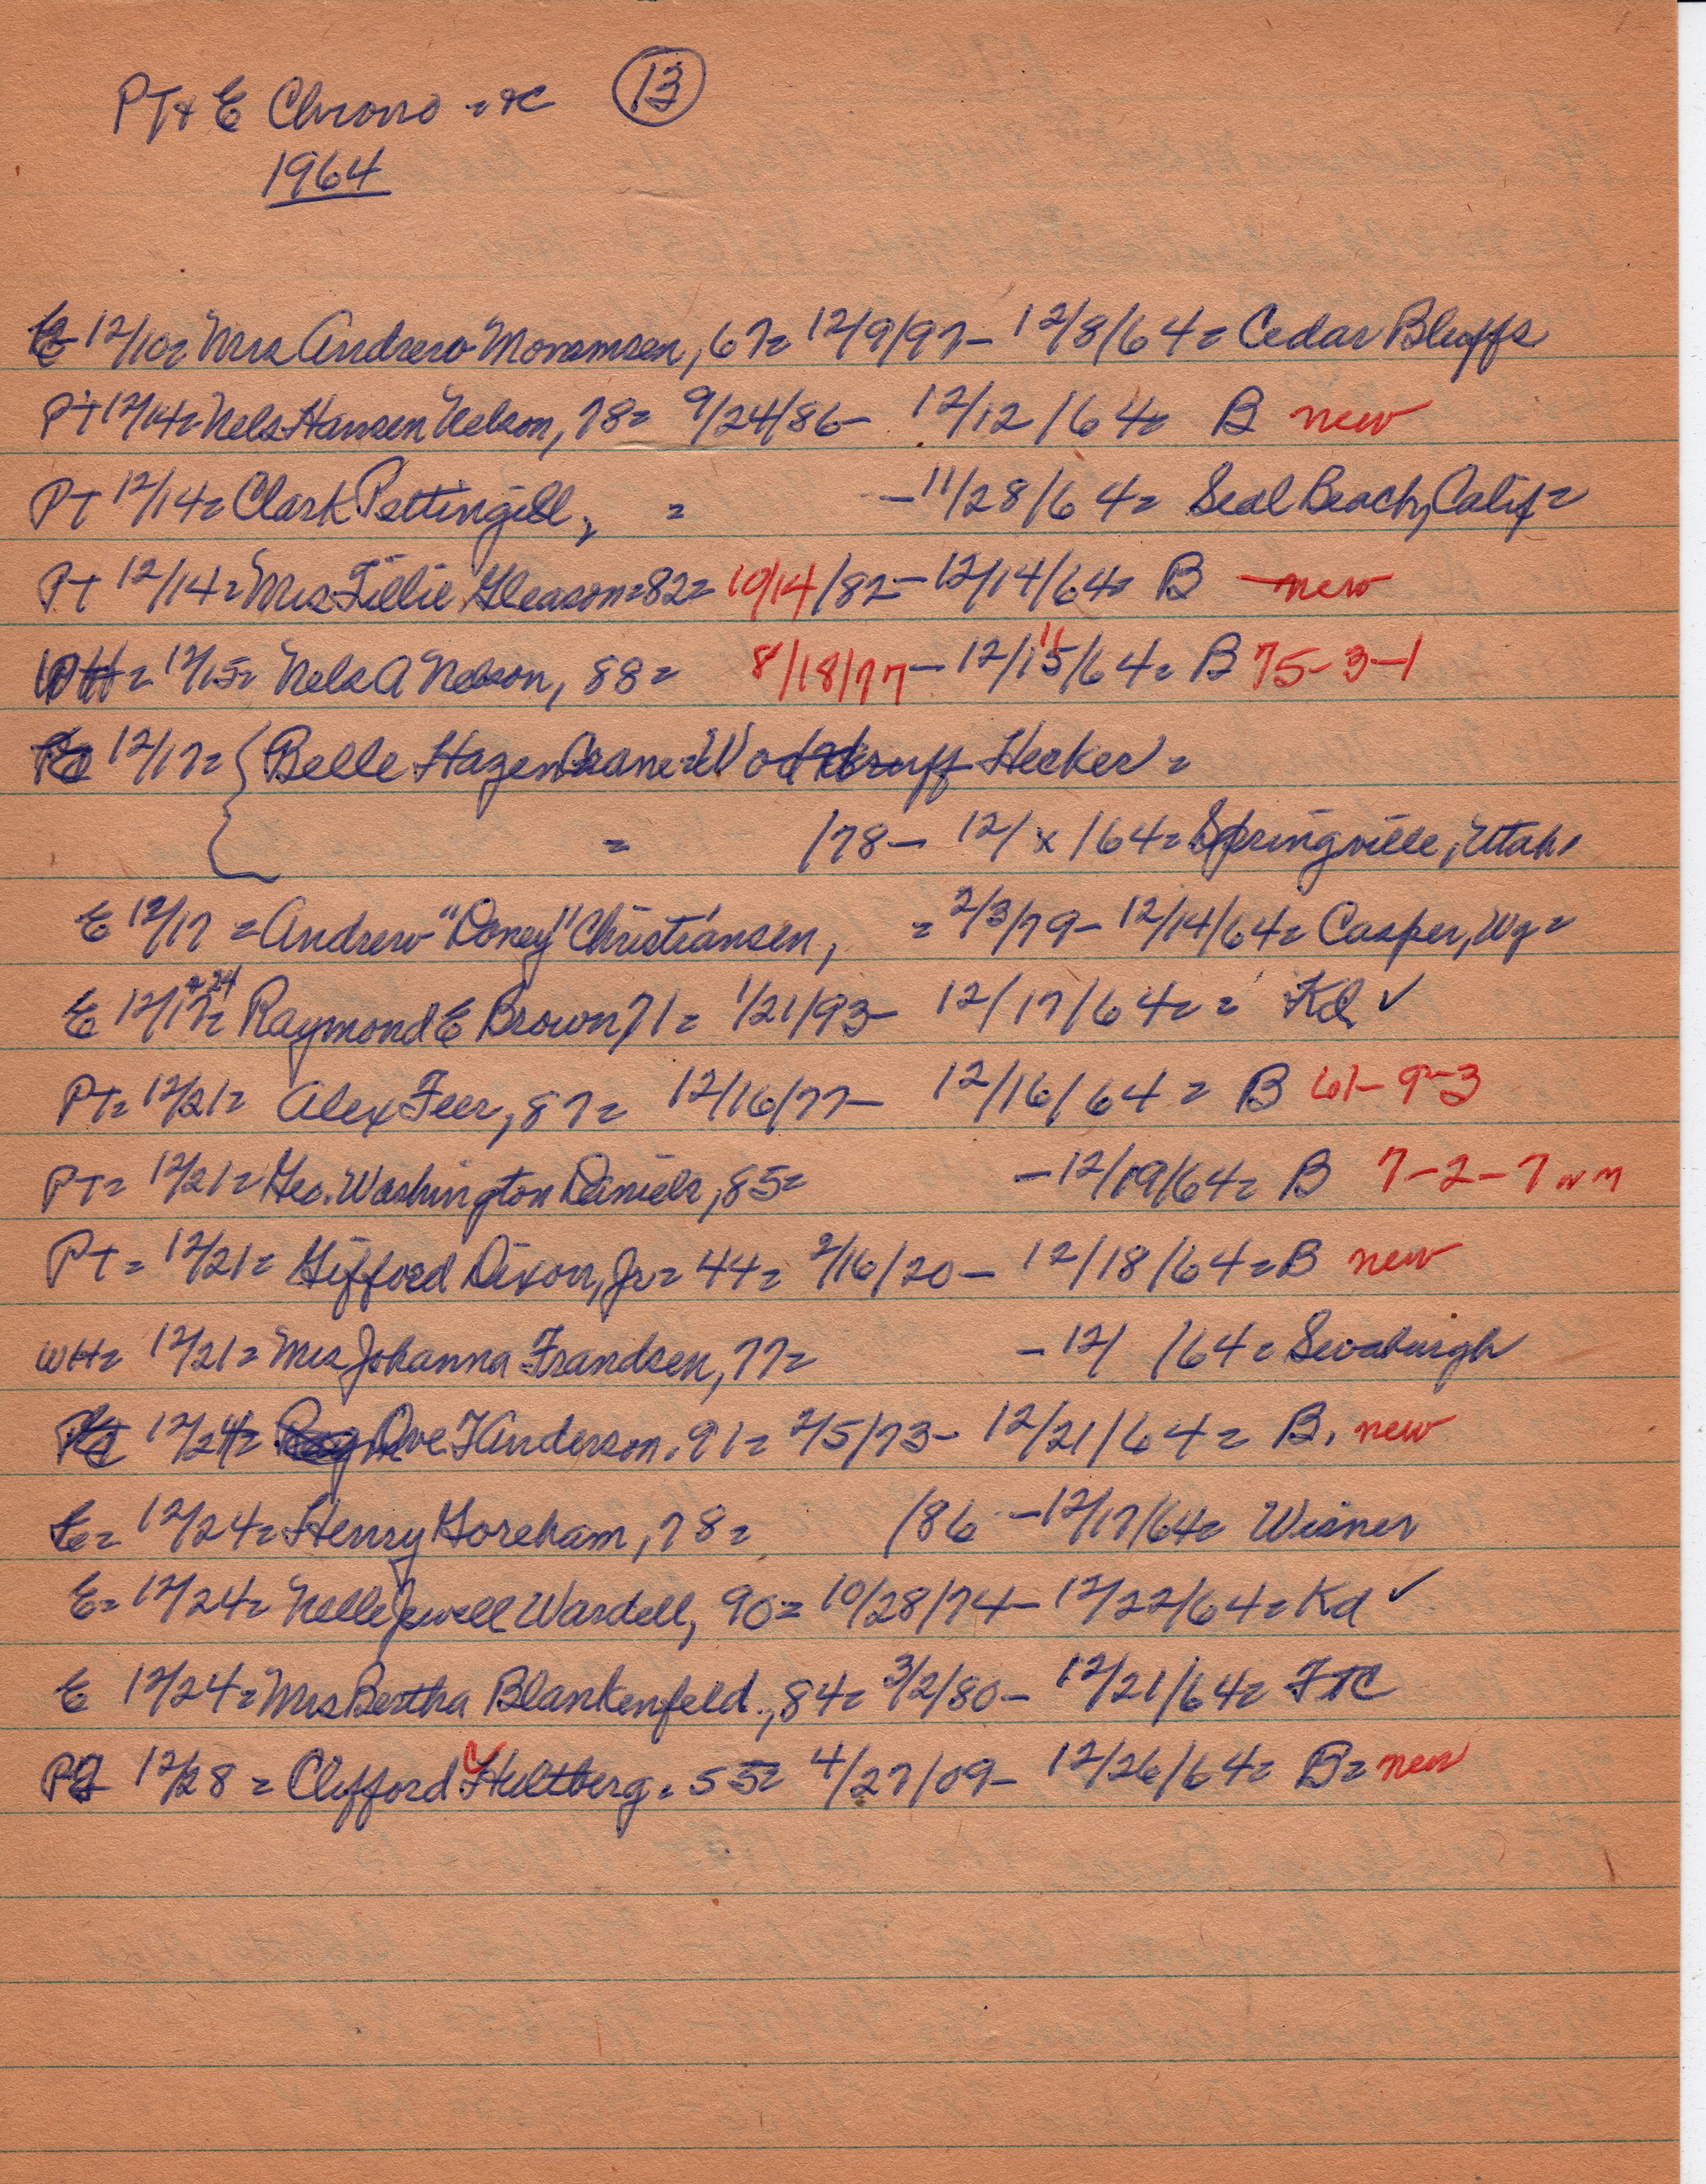 PT & E Chrono - &c (13)
1964
E 12/10= Mrs Andrew Monsmsen, 67= 12/9/97- 12/8/64= Cedar Bluffs
PT 12/14= Nels Hansen Nelson, 78= 9/24/86- 12/12/64= B new
PT 12/14= Clark Pettingill, = -11/28/64= Seal Beach, Calif=
PT 12/14= Mrs Tillie Gleason=82= 10/14/82- 12/14/64= B new
WH= 12/15= Nels A Nelson, 88= 8/18/77- 12/15/64= B 75-3-1
12/17= Belle Hazen Crane Woodruff Hecker=
= /78- 12/x/64= Springville, Utah
E 12/17 = Andrew "Doney" Christiansen, = 2/3/79- 12/14/64= Casper, Wy=
E 12/17 & 24= Raymond E Brown 71= 1/21/93- 12/17/64= = Kd ✓
PT= 12/21= Alex Feer, 87= 12/16/77- 12/16/64= B 61-9-3
PT= 12/21= Geo. Washington Daniels, 85= -12/19/64= B 7-2-7
PT= 12/21= Gifford Dixon, Jr= 44= 2/16/20- 12/18/64= B new
WH= 12/21= Mrs Johanna Frandsen, 77= -12/ /64= Swaburgh
12/24= Ove T Anderson, 91= 2/5/73- 12/21/64= B, new
E= 12/24= Henry Goreham, 78= /86 -12/17/64= Wisner
E= 12/24= Nelle Jewell Wardell, 90= 10/28/74- 12/22/64= Kd ✓
E 12/24= Mrs Bertha Blankenfeld, 84= 3/2/80- 12/21/64= FTC
PT 12/28 = Clifford Hultberg= 55= 4/27/09- 12/26/64= B= new